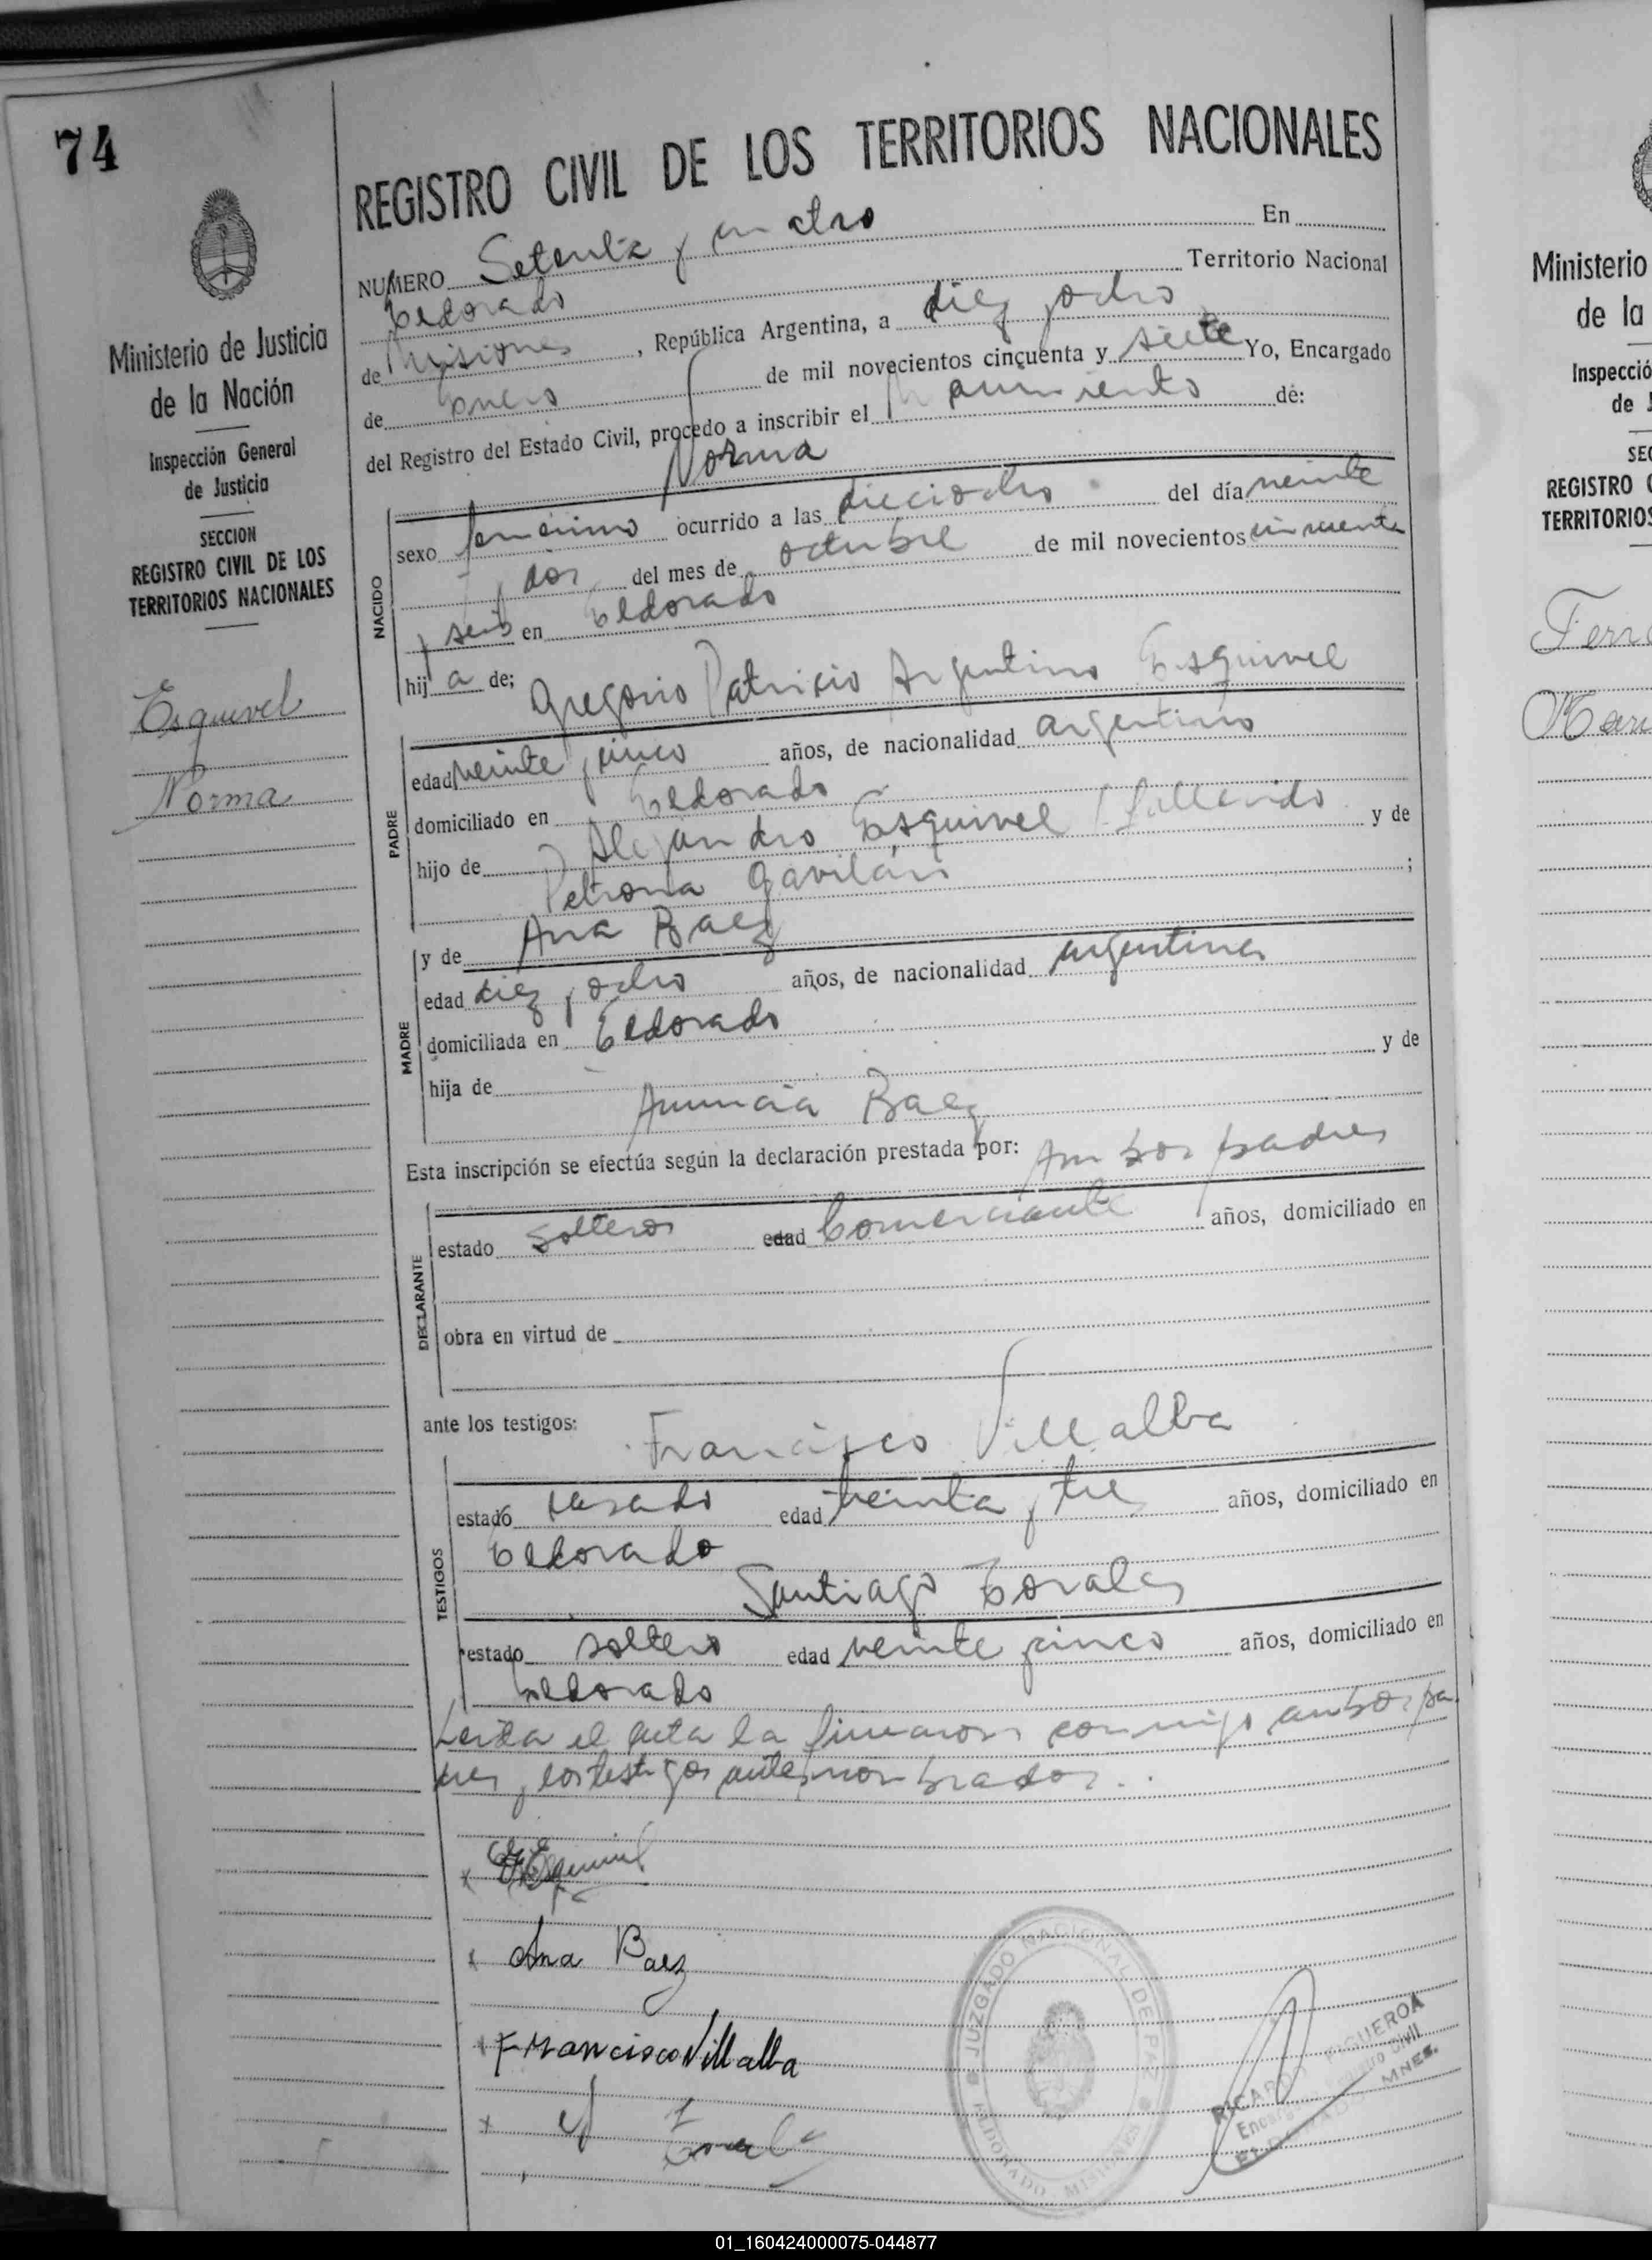 74
Ministerio de Justicia
de la Nación
Inspección General
de Justicia
SECCION
REGISTRO CIVIL DE LOS
TERRITORIOS NACIONALES
Esquivel
Norma
REGISTRO CIVIL DE LOS TERRITORIOS NACIONALES
NUMERO Setenta y cuatro En
Eldorado Territorio Nacional
de Misiones, República Argentina, a diez y ocho
de Enero de mil novecientos cincuenta y siete Yo, Encargado
del Registro del Estado Civil, procedo a inscribir el Nacimiento de:
Norma
NACIDO
sexo femenino ocurrido a las dieciocho del día veinte
y dos del mes de octubre de mil novecientos cincuenta
y seis en Eldorado
hij a de; Gregorio Patricio Argentino Esquivel
PADRE
edad veinte y cinco años, de nacionalidad argentino
domiciliado en Eldorado
hijo de Alejandro Esquivel (fallecido y de
Petrona Gavilán ;
y de Ana Baez
MADRE
edad diez y ocho años, de nacionalidad argentina
domiciliada en Eldorado
hija de y de
Anuncia Baez
Esta inscripción se efectúa según la declaración prestada por: Ambos padres
DECLARANTE
estado solteros edad Comerciante años, domiciliado en
obra en virtud de
ante los testigos: Francisco Villalba
TESTIGOS
estado casado edad treinta y tres años, domiciliado en
Eldorado
Santiago Corales
estado soltero edad veinte y cinco años, domiciliado en
Eldorado
Leida el acta la firmaron conmigo ambos pa
dres y los testigos antes nombrados..
x Esquivel
x Ana Baez
x Francisco Villalba
x
JUZGADO NACIONAL DE PAZ
ELDORADO MISIONES
RICARDO FIGUEROA
Encargado Registro Civil
ELDORADO MNES.
Ministerio
de la
Inspecció
de J
SEC
REGISTRO C
TERRITORIOS
01_160424000075-044877